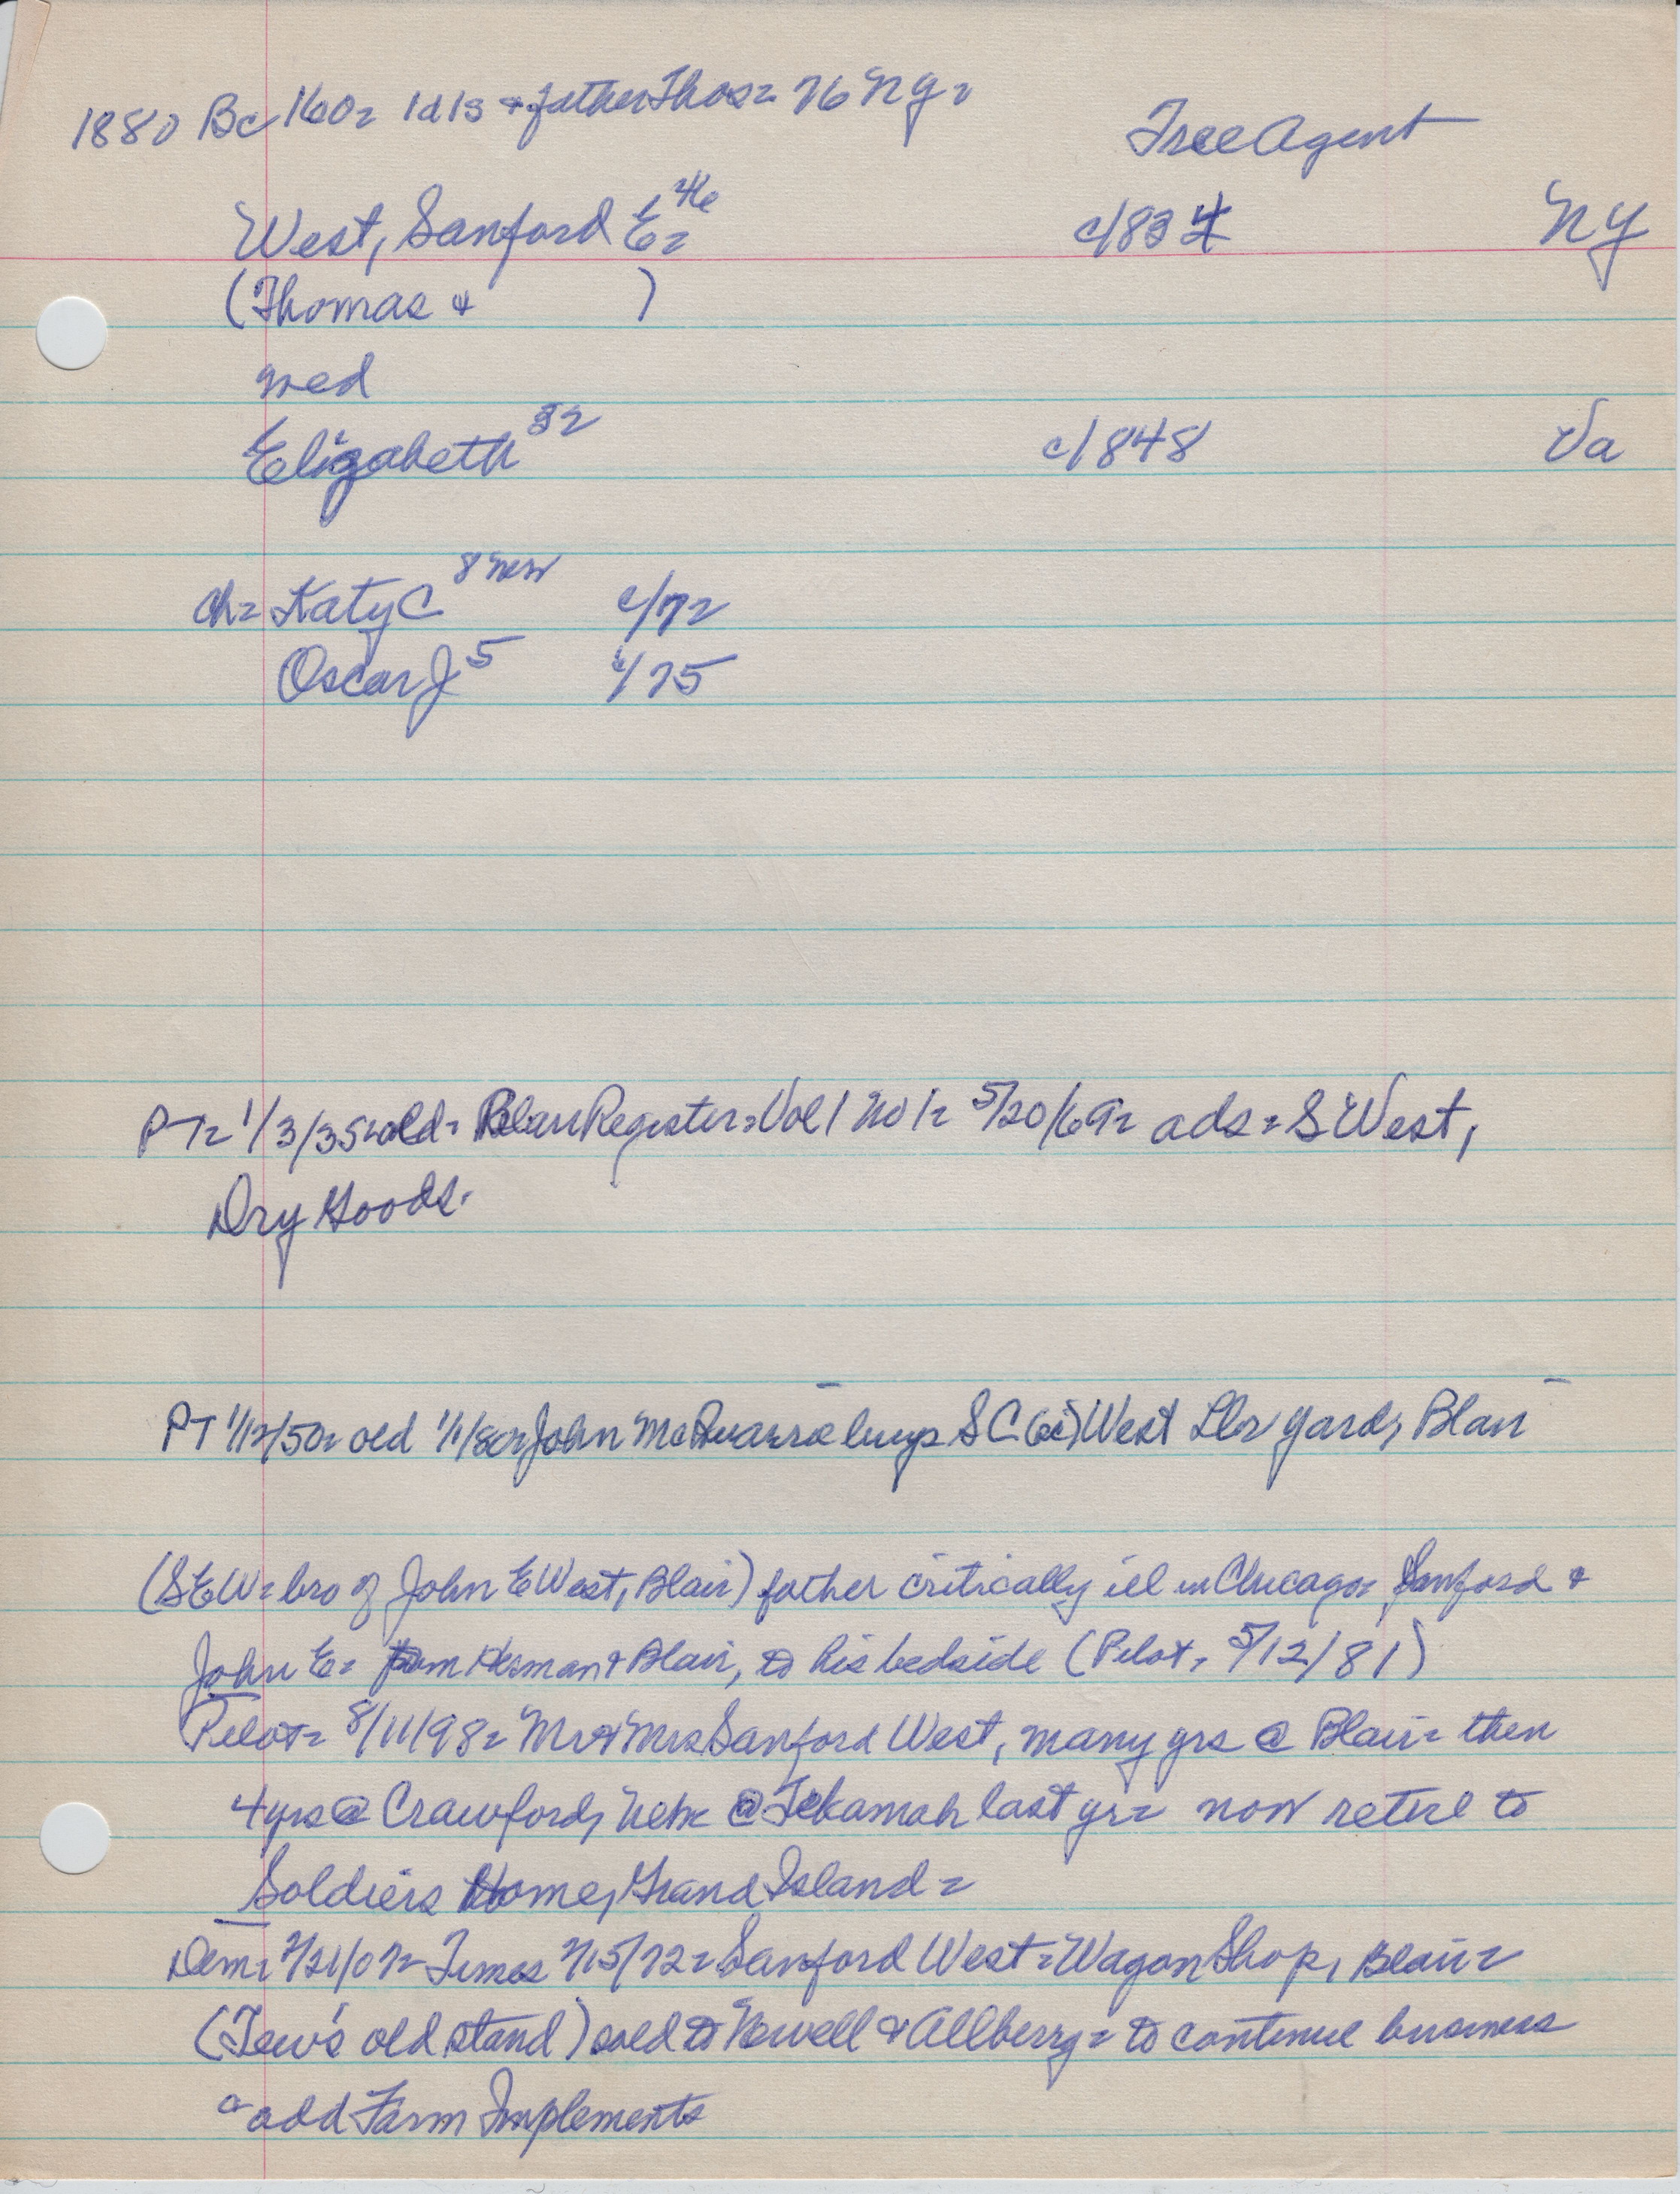 1880 Bc 160= 1d 1s + father Thos= 76 NY=
Tree Agent
West, Sanford E= 46 c/834 NY
(Thomas + )
med
Elizabeth 32 c/848 Va
ch= Katy C 8 Neb c/72
Oscar J 5 c/75
PT= 1/3/35= old= Blair Register= Vol 1 No 1= 5/20/69= ads= S West,
Dry Goods.
PT 1/12/50= old 1/1/80= John McQuarrie buys S C (sic) West Lbr yard, Blair
(SEW= bro of John E West, Blair) father critically ill in Chicago= Sanford +
John E= from Herman + Blair, to his bedside (Pilot, 5/12/81)
Pilot= 8/11/98= Mr + Mrs Sanford West, many yrs @ Blair= then
4 yrs @ Crawford, Nebr @ Tekamah last yr= now retire to
Soldiers Home, Grand Island=
Dem= 2/21/07= Times 2/15/72= Sanford West= Wagon Shop, Blair=
(Tew's old stand) sold to Newell + Allberry= to continue business
+ add Farm Implements